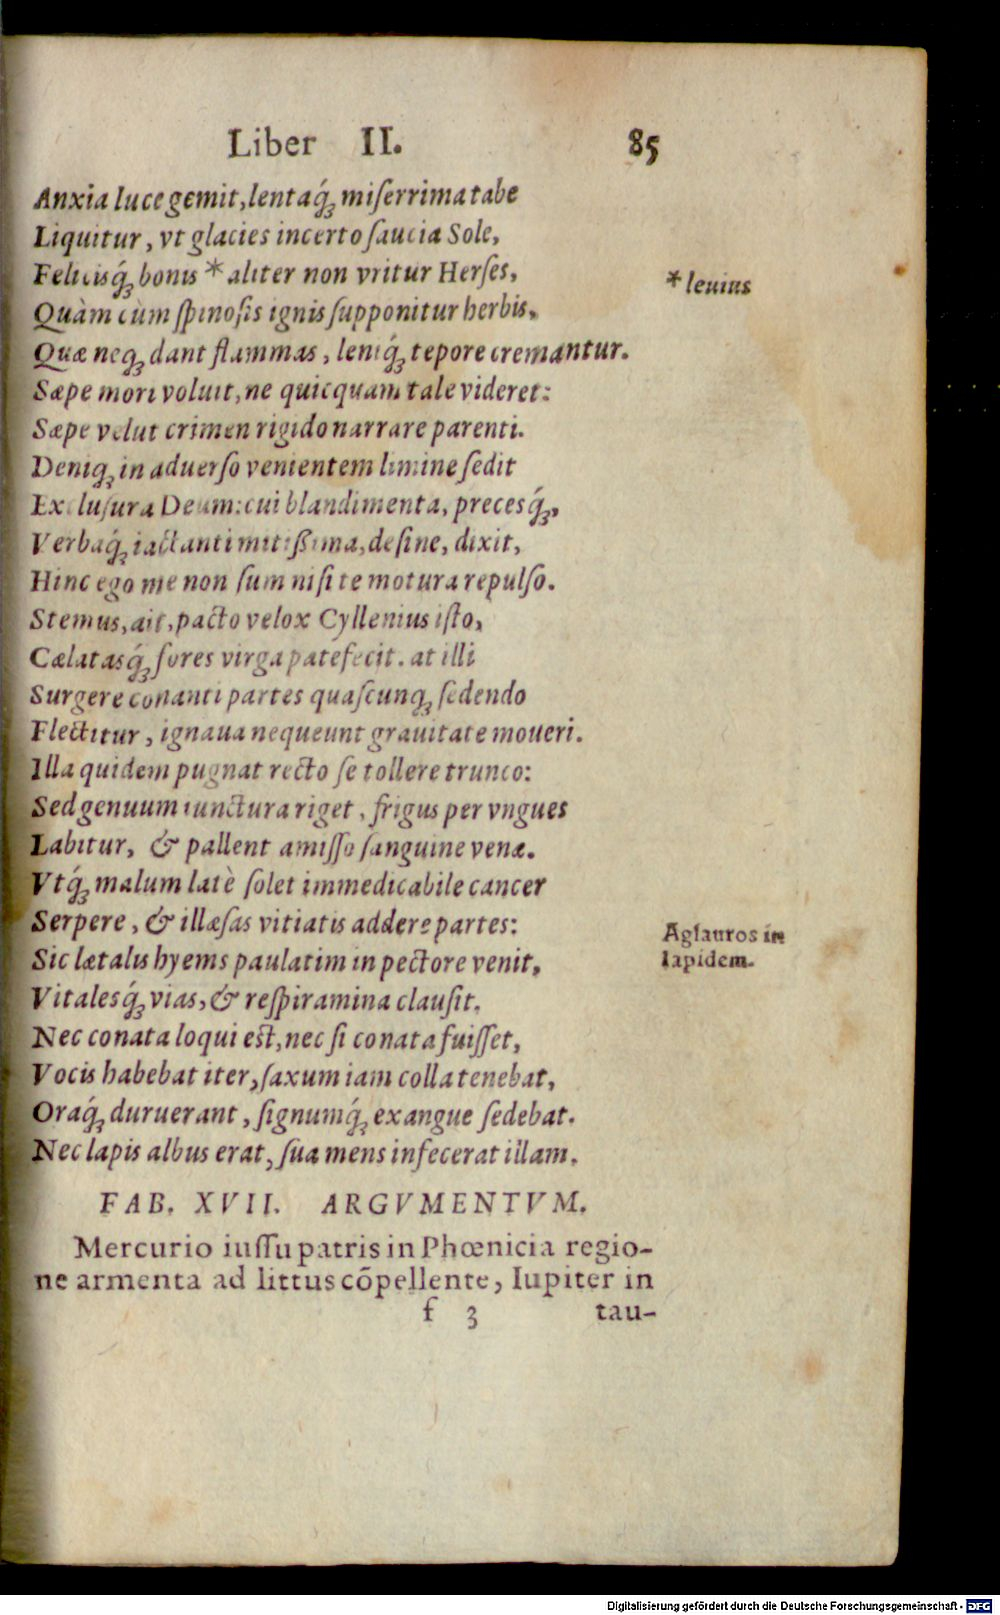 Liber II. 85
Anxia luce gemit, lentaq́; miſerrima tabe
Liquitur, vt glacies incerto ſaucia Sole,
Felicisq́; bonis * aliter non vritur Herſes,
* leuius
Quàm cùm ſpinoſis ignis ſupponitur herbis,
Quæ neq; dant flammas, leniq́; tepore cremantur.
Sæpe mori voluit, ne quicquam tale videret:
Sæpe velut crimen rigido narrare parenti.
Deniq; in aduerſo venientem limine ſedit
Excluſura Deum: cui blandimenta, precesq́;,
Verbaq́; iactanti mitißima, deſine, dixit,
Hinc ego me non ſum niſi te motura repulſo.
Stemus, ait, pacto velox Cyllenius iſto,
Cælatasq́; fores virga patefecit. at illi
Surgere conanti partes quaſcunq; ſedendo
Flectitur, ignaua nequeunt grauitate moueri.
Illa quidem pugnat recto ſe tollere trunco:
Sed genuum iunctura riget, frigus per vngues
Labitur, & pallent amiſſo ſanguine venæ.
Vtq́; malum latè ſolet immedicabile cancer
Serpere, & illæſas vitiatis addere partes:
Aglauros in
lapidem.
Sic lætalis hyems paulatim in pectore venit,
Vitalesq́; vias, & reſpiramina clauſit.
Nec conata loqui eſt, nec ſi conata fuiſſet,
Vocis habebat iter, ſaxum iam colla tenebat,
Oraq́; duruerant, ſignumq́; exangue ſedebat.
Nec lapis albus erat, ſua mens infecerat illam.
FAB. XVII. ARGVMENTVM.
Mercurio iuſſu patris in Phœnicia regio-
ne armenta ad littus cõpellente, Iupiter in
f 3 tau-
Digitalisierung gefördert durch die Deutsche Forschungsgemeinschaft - DFG